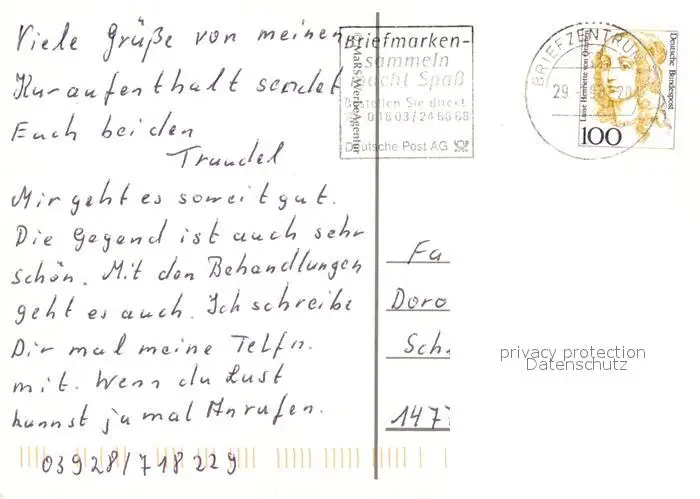 Viele Grüße von meinen
Kuraufenthalt sendet
Euch beiden
Traudel
Mir geht es soweit gut.
Die Gegend ist auch sehr
schön. Mit den Behandlungen
geht es auch. Ich schreibe
Dir mal meine Telfn.
mit. Wenn du Lust
kannst ja mal Anrufen.
03928/718229
©MaRS WerbeAgentur
Briefmarken-
sammeln
macht Spaß
Bestellen Sie direkt
01803/246868
Deutsche Post AG
BRIEFZENTRUM
29.
Luise Henriette von Oranien
Deutsche Bundespost
100
Fa
Doro
Sch
1477
privacy protection
Datenschutz